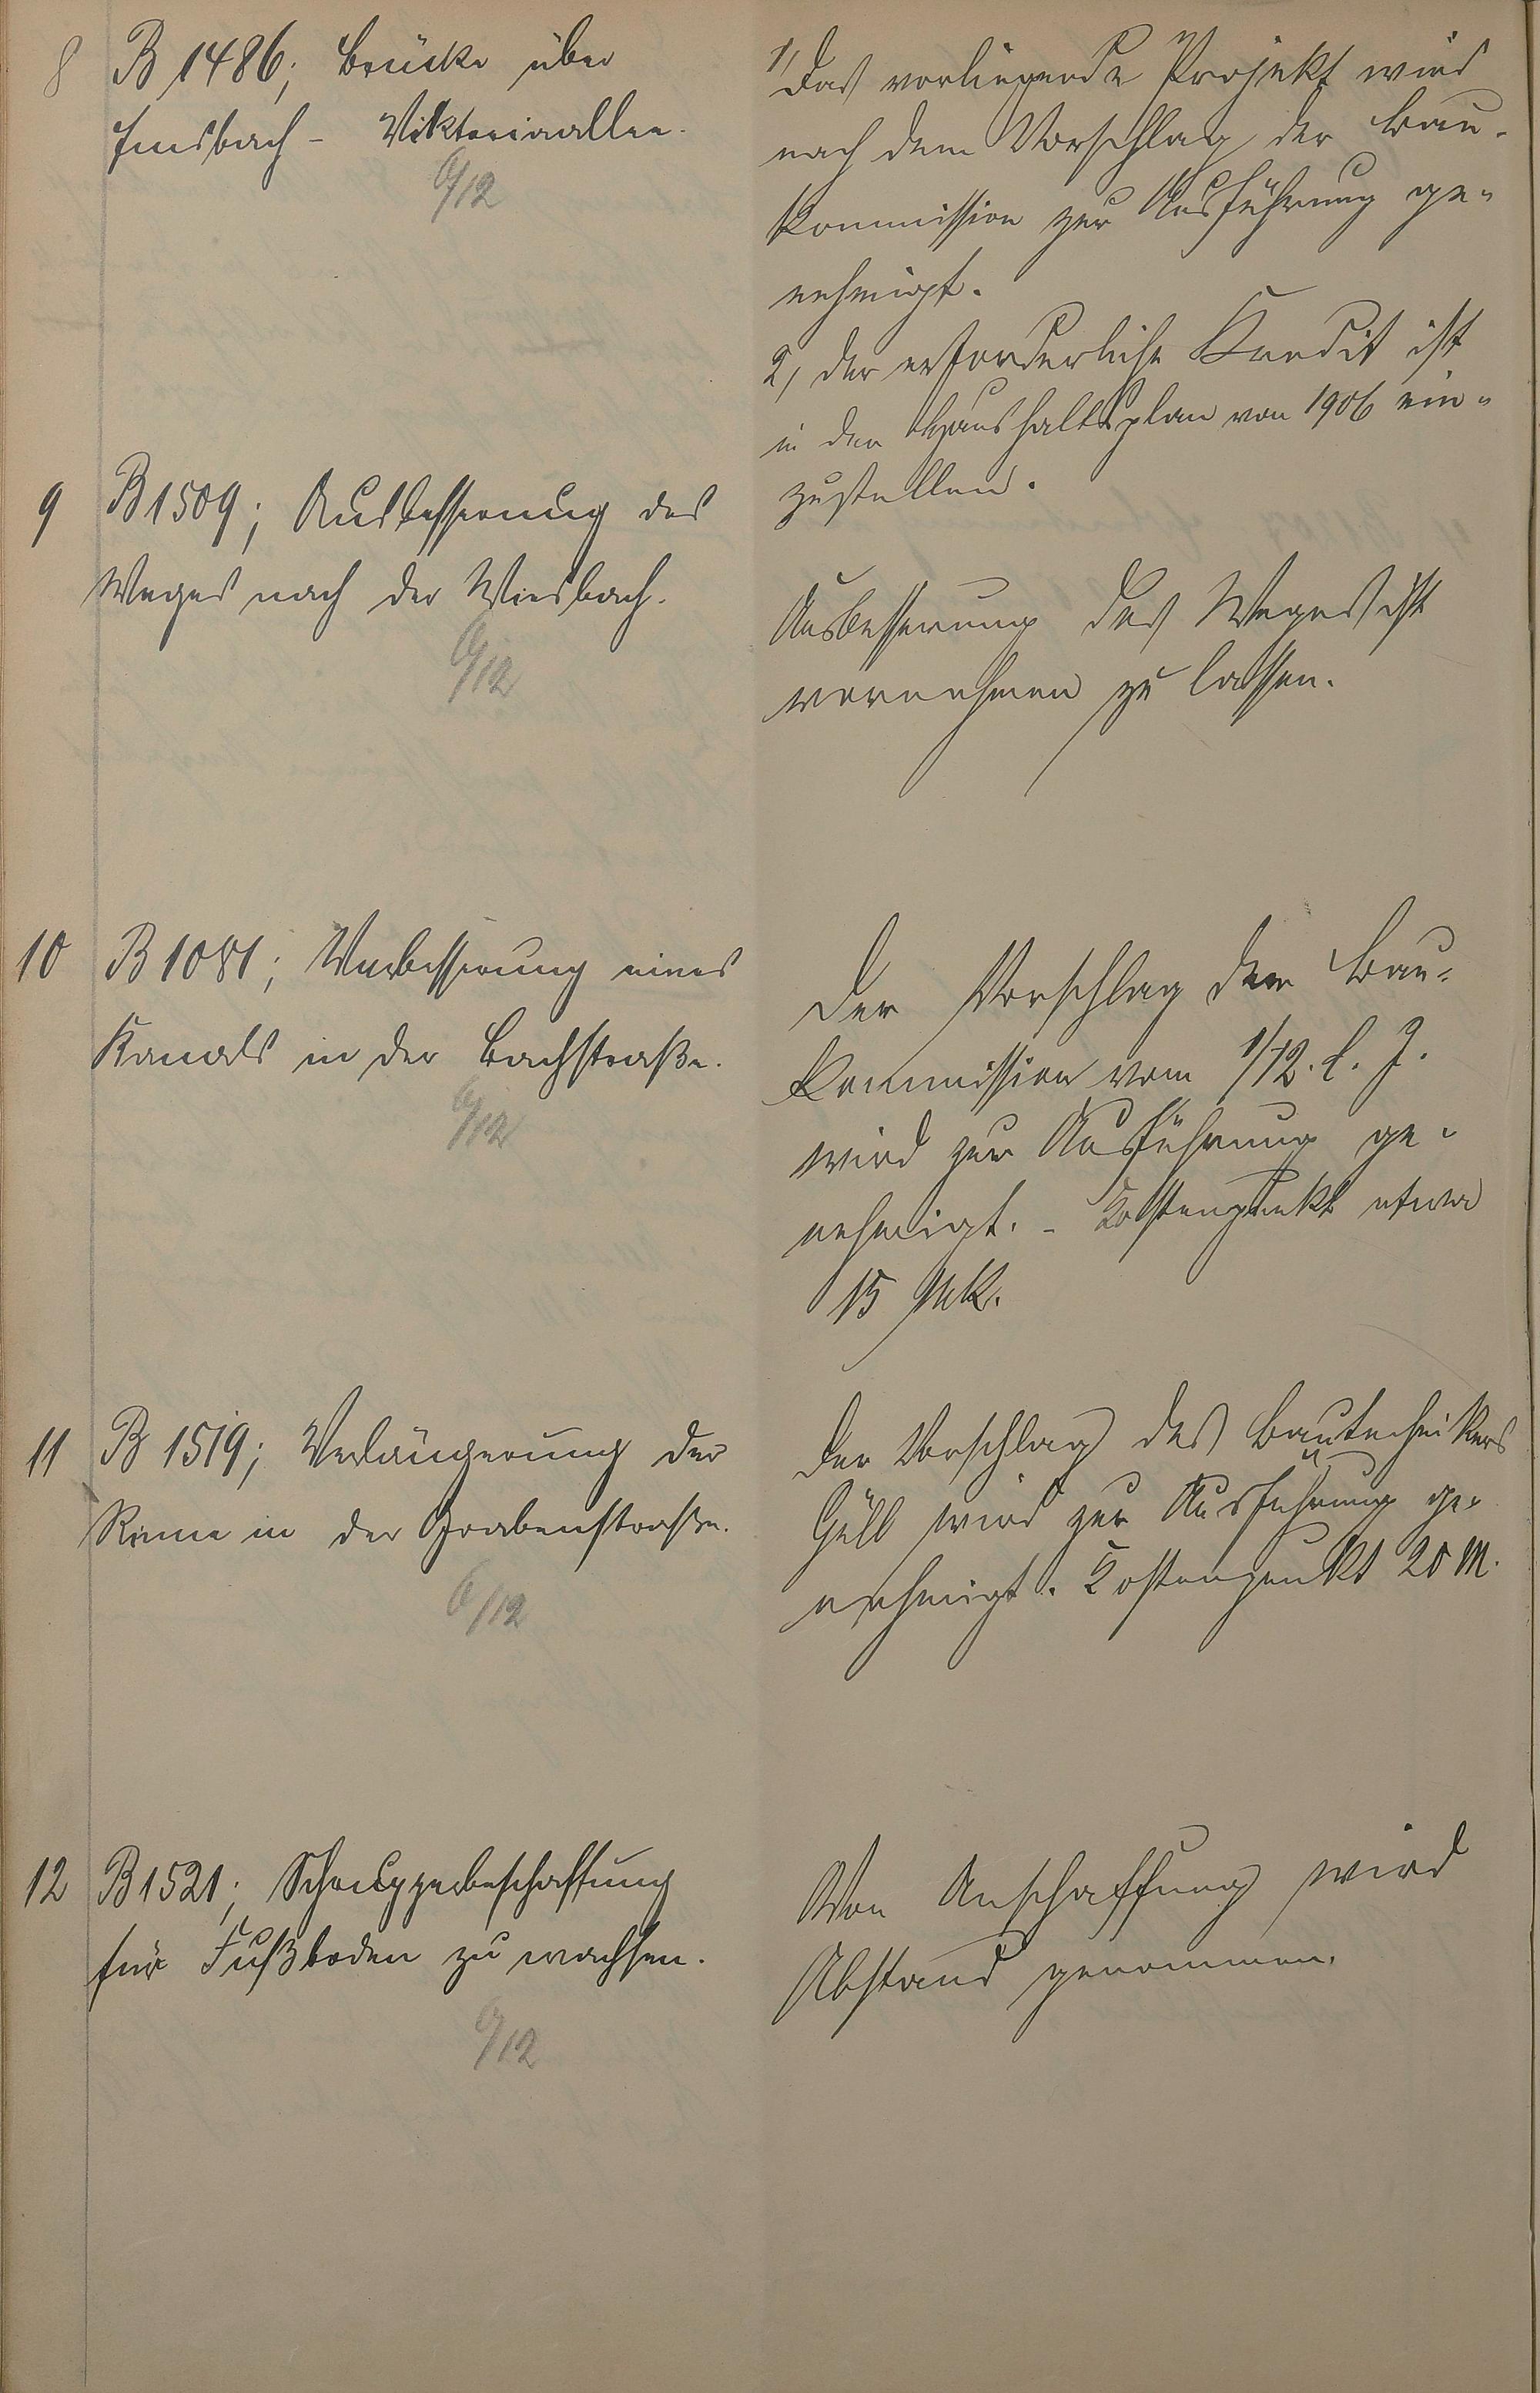 8 B 1486; Brücke über
Emsbach - Viktoriaallee.
6/12
1, Das vorliegende Projekt wird
nach dem Vorschlag der Bau-
kommission zur Ausführung ge-
nehmigt.
2, der erforderliche Kredit ist
in den Haushaltsplan von 1906 ein-
zustellen.
9 B 1509; Ausbesserung des
Weges nach der Wiesbach.
6/12
Ausbesserung des Weges ist
vornehmen zu lassen.
10 B 1081; Verbesserung eines
Kanals in der Bachstraße.
6/12
Der Vorschlag der Bau-
kommission vom 1/12. l. J.
wird zur Ausführung ge-
nehmigt. - Kostenpunkt etwa
15 Mk.
11 B 1519; Verlängerung der
Rinne in der Grabenstraße.
6/12
Der Vorschlag des Bautechnikers
Güll wird zur Ausführung ge-
nehmigt. Kostenpunkt 20 M.
12 B 1521; 
für Fußboden zu wachsen.
6/12
Von Anschaffung wird
Abstand genommen.